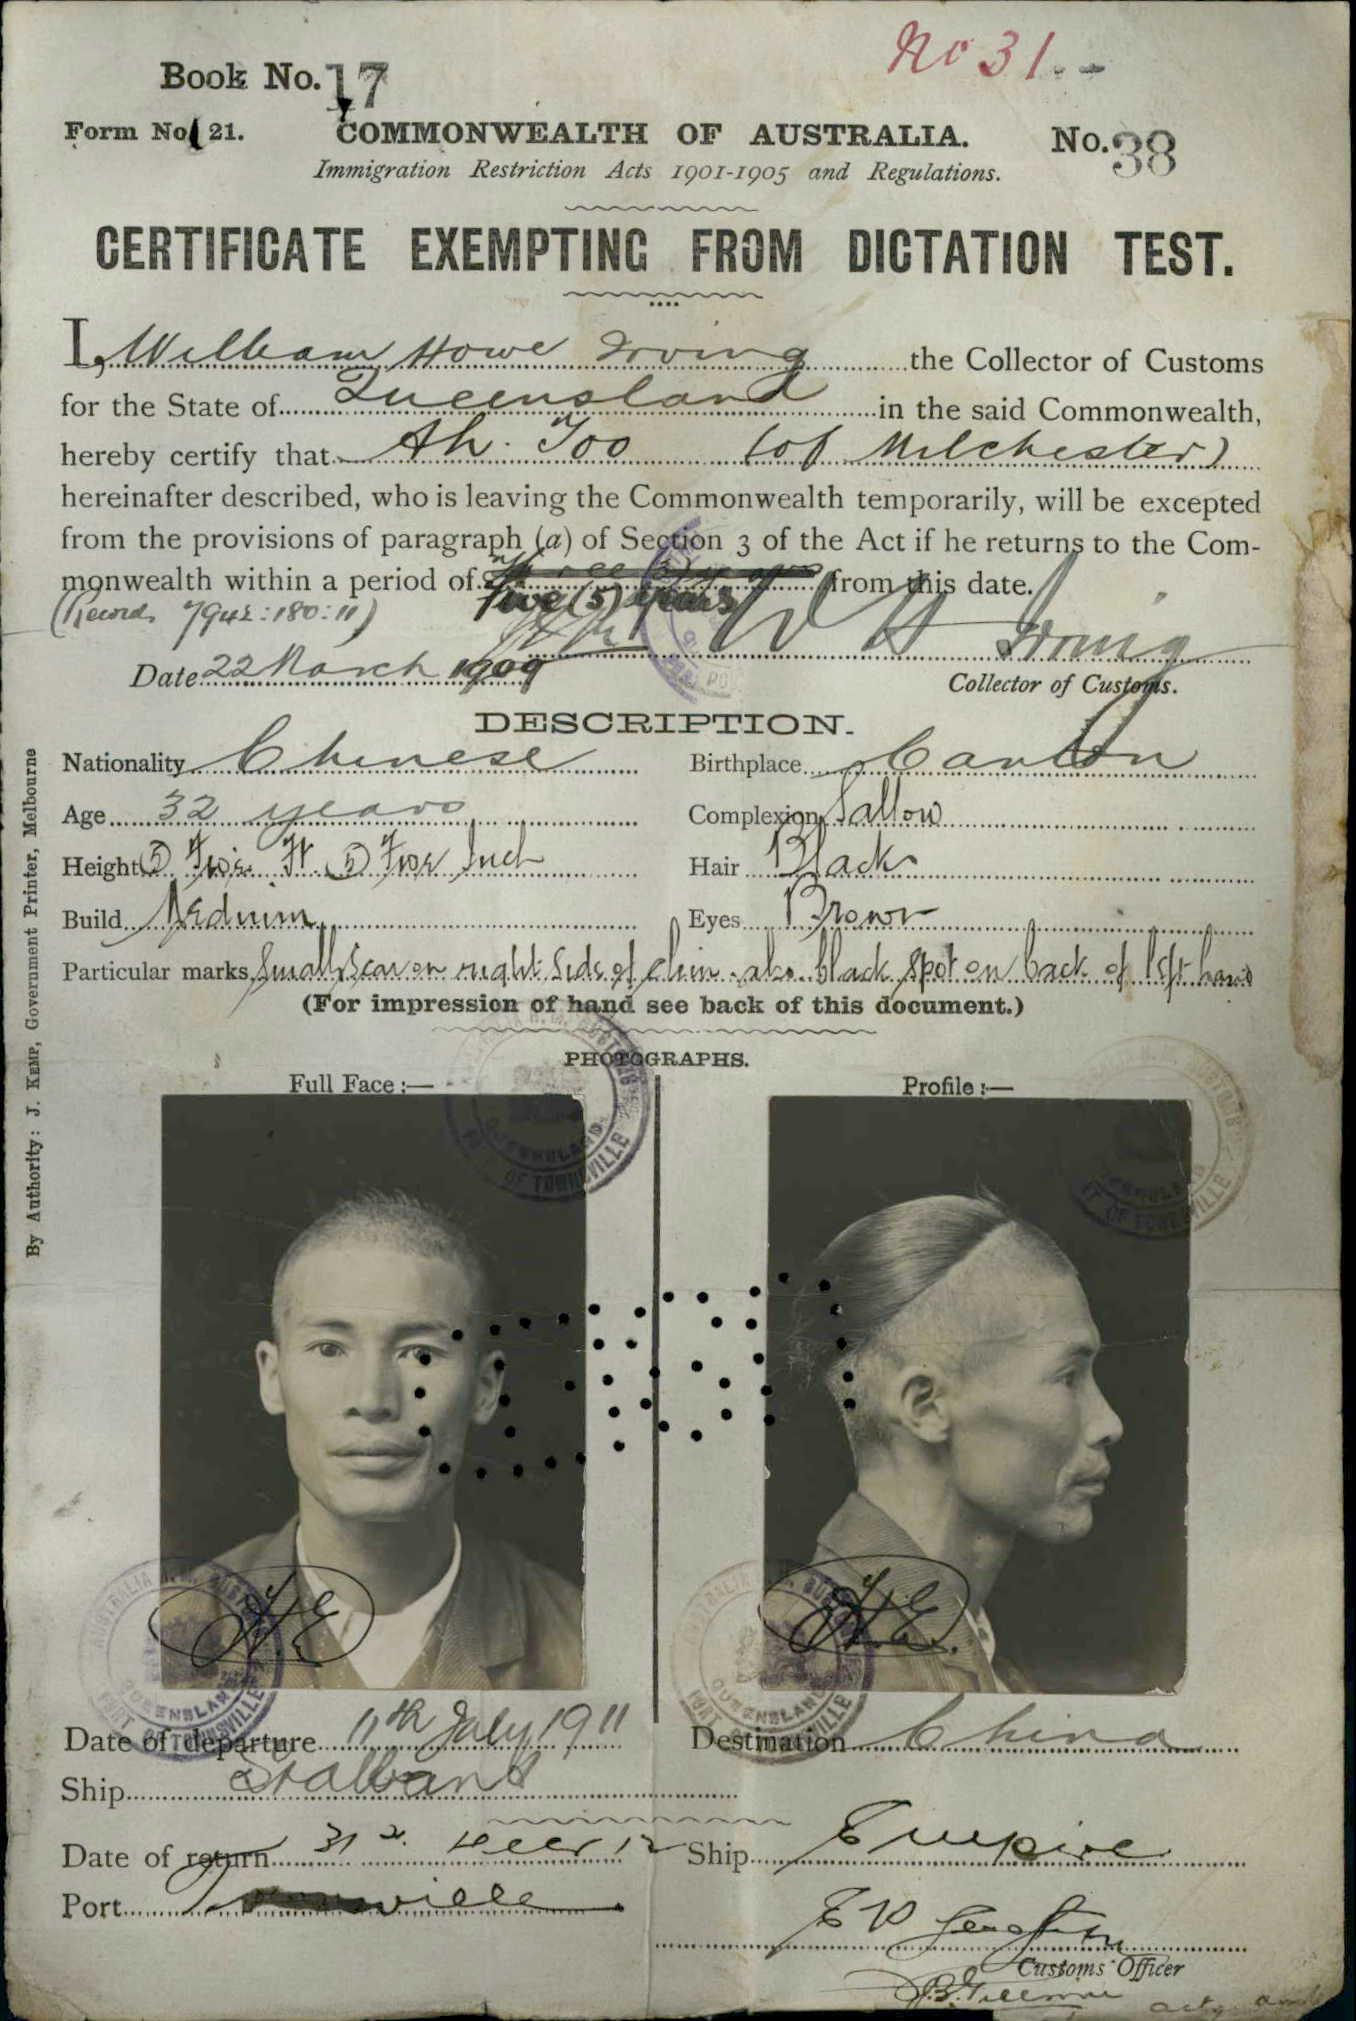 No 31.-
Book No. 17
Form No. 21. COMMONWEALTH OF AUSTRALIA. No. 38
Immigration Restriction Acts 1901-1905 and Regulations.
CERTIFICATE EXEMPTING FROM DICTATION TEST.
I, William Howe Irving the Collector of Customs
for the State of Queensland in the said Commonwealth,
hereby certify that Ah Foo (of Milchester)
hereinafter described, who is leaving the Commonwealth temporarily, will be excepted
from the provisions of paragraph (a) of Section 3 of the Act if he returns to the Com-
monwealth within a period of Three (3) years from this date.
Five (5) years
(Records 7942:180:11)
W H Irving
Date 22 March 1909
Collector of Customs.
DESCRIPTION.
Nationality Chinese Birthplace Canton
Age 32 years Complexion Sallow
Height 5 Five Ft. 5 Five Inch Hair Black
Build Medium Eyes Brown
Particular marks Small scar on right side of chin. also black spot on back of left hand
(For impression of hand see back of this document.)
PHOTOGRAPHS.
Full Face :— Profile :—
By Authority: J. KEMP, Government Printer, Melbourne
QUEENSLAND
PORT OF TOWNSVILLE
QUEENSLAND
PORT OF TOWNSVILLE
H.E. H.E.
AUSTRALIA H.M. CUSTOMS
QUEENSLAND
PORT OF TOWNSVILLE
AUSTRALIA H.M. CUSTOMS
QUEENSLAND
PORT OF TOWNSVILLE
Date of departure 11th July 1911 Destination China
Ship St Albans
Date of return 31 Decr 12 Ship Empire
Port Townsville
Customs Officer